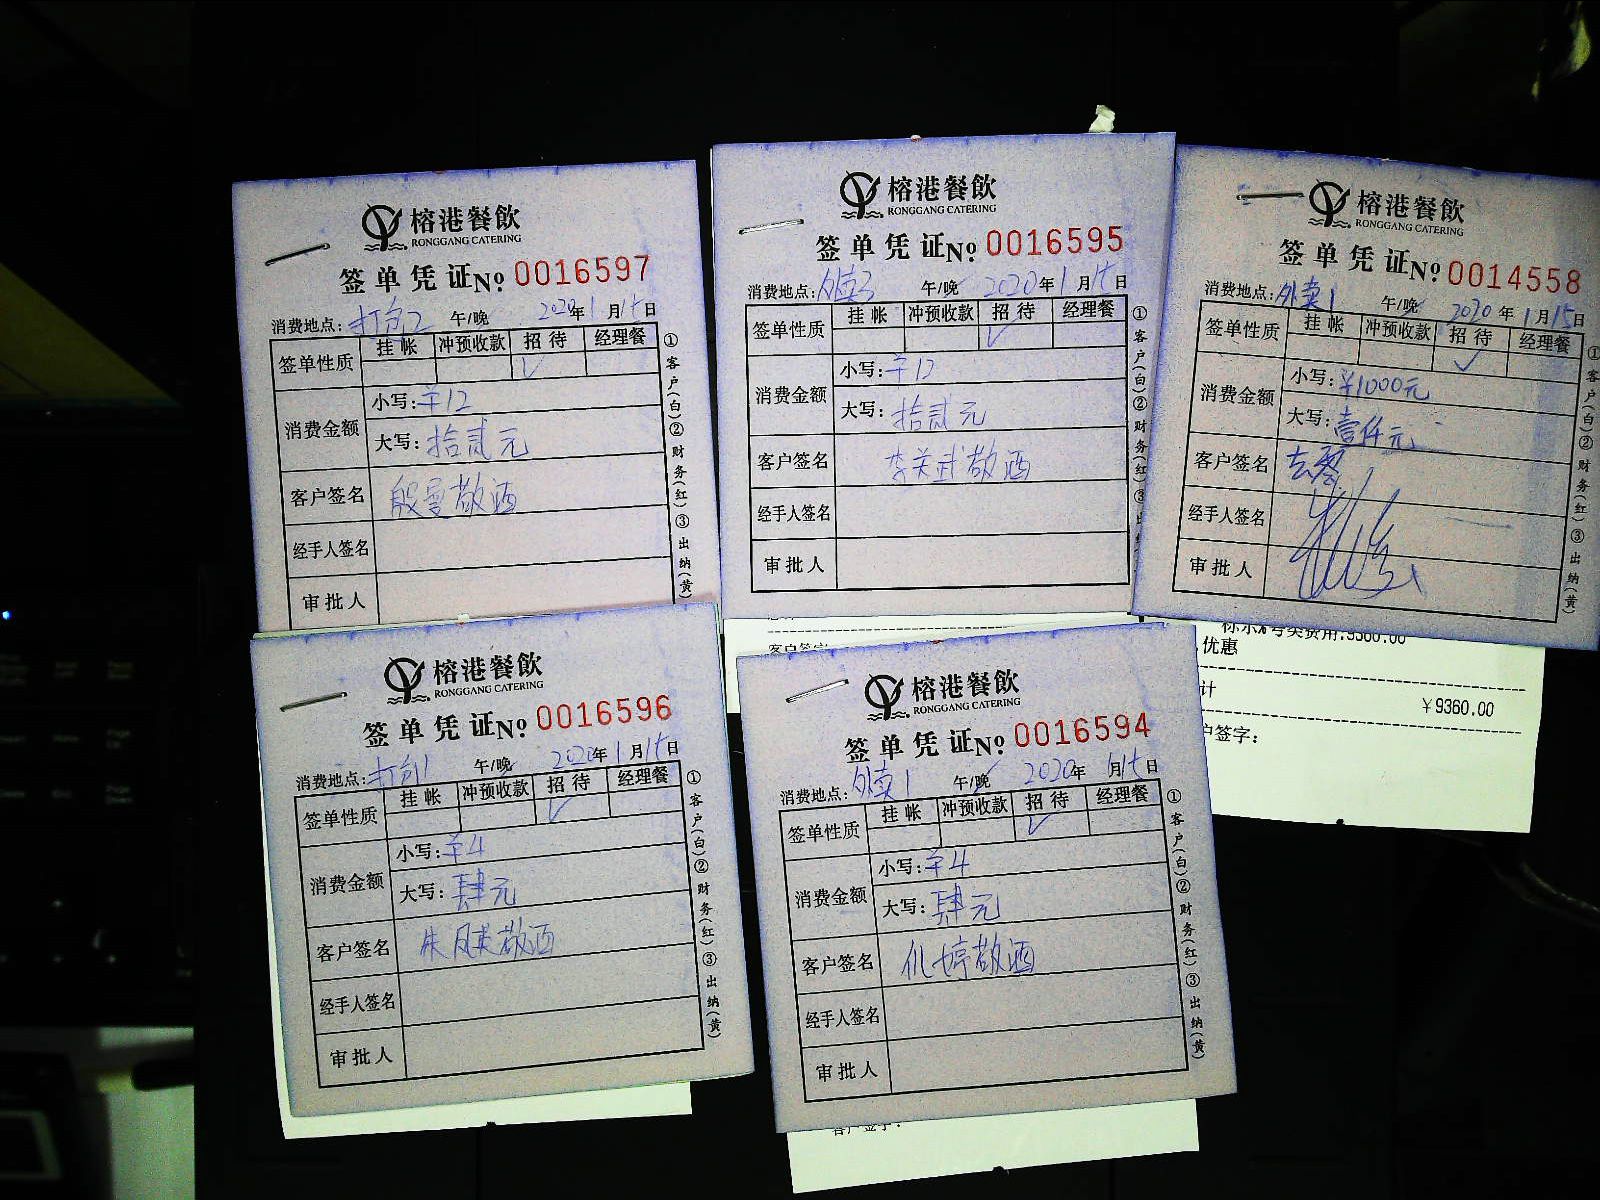 榕港餐飲
RONGGANG CATERING
签单凭证№ 0016597
消费地点: 打包2 午/晚 2020年1月15日
签单性质 挂帐 冲预收款 招待 经理餐
✓
消费金额 小写: ¥12
大写: 拾贰元
客户签名 殷曼敬酒
经手人签名
审批人
①客户(白)②财务(红)③出纳(黄)
榕港餐飲
RONGGANG CATERING
签单凭证№ 0016595
消费地点: 外卖3 午/晚 2020年1月15日
签单性质 挂帐 冲预收款 招待 经理餐
✓
消费金额 小写: ¥12
大写: 拾贰元
客户签名 李关武敬酒
经手人签名
审批人
①客户(白)②财务(红)③出纳
榕港餐飲
RONGGANG CATERING
签单凭证№ 0014558
消费地点: 外卖1 午/晚 2020年1月15日
签单性质 挂帐 冲预收款 招待 经理餐
✓
消费金额 小写: ¥1000元
大写: 壹仟元
客户签名
经手人签名
审批人
①客户(白)②财务(红)③出纳(黄)
榕港餐飲
RONGGANG CATERING
签单凭证№ 0016596
消费地点: 打包1 午/晚 2020年1月15日
签单性质 挂帐 冲预收款 招待 经理餐
✓
消费金额 小写: ¥4
大写: 肆元
客户签名 朱凤英敬酒
经手人签名
审批人
①客户(白)②财务(红)③出纳(黄)
榕港餐飲
RONGGANG CATERING
签单凭证№ 0016594
消费地点: 外卖1 午/晚 2020年1月15日
签单性质 挂帐 冲预收款 招待 经理餐
✓
消费金额 小写: ¥4
大写: 肆元
客户签名 仇婷敬酒
经手人签名
审批人
①客户(白)②财务(红)③出纳(黄)
费用:9360.00
优惠
计 ¥9360.00
户签字: